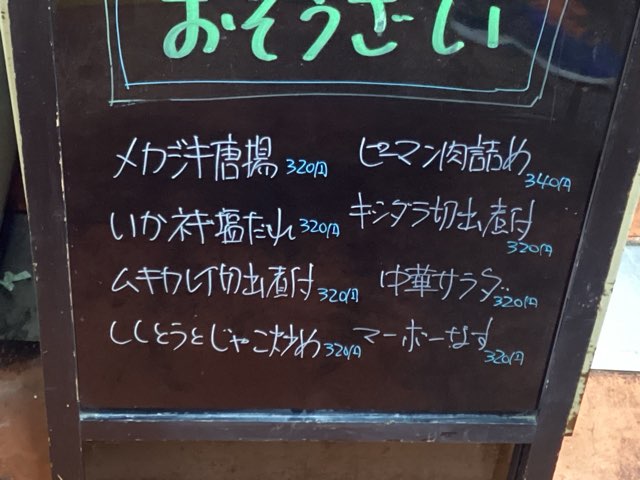 おそうざい
メカジキ唐揚 320円
いかネギ塩だれ 320円
ムキカレイ切出煮付 320円
ししとうとじゃこ炒め 320円
ピーマン肉詰め 340円
ギンダラ切出煮付 320円
中華サラダ 320円
マーボーなす 320円